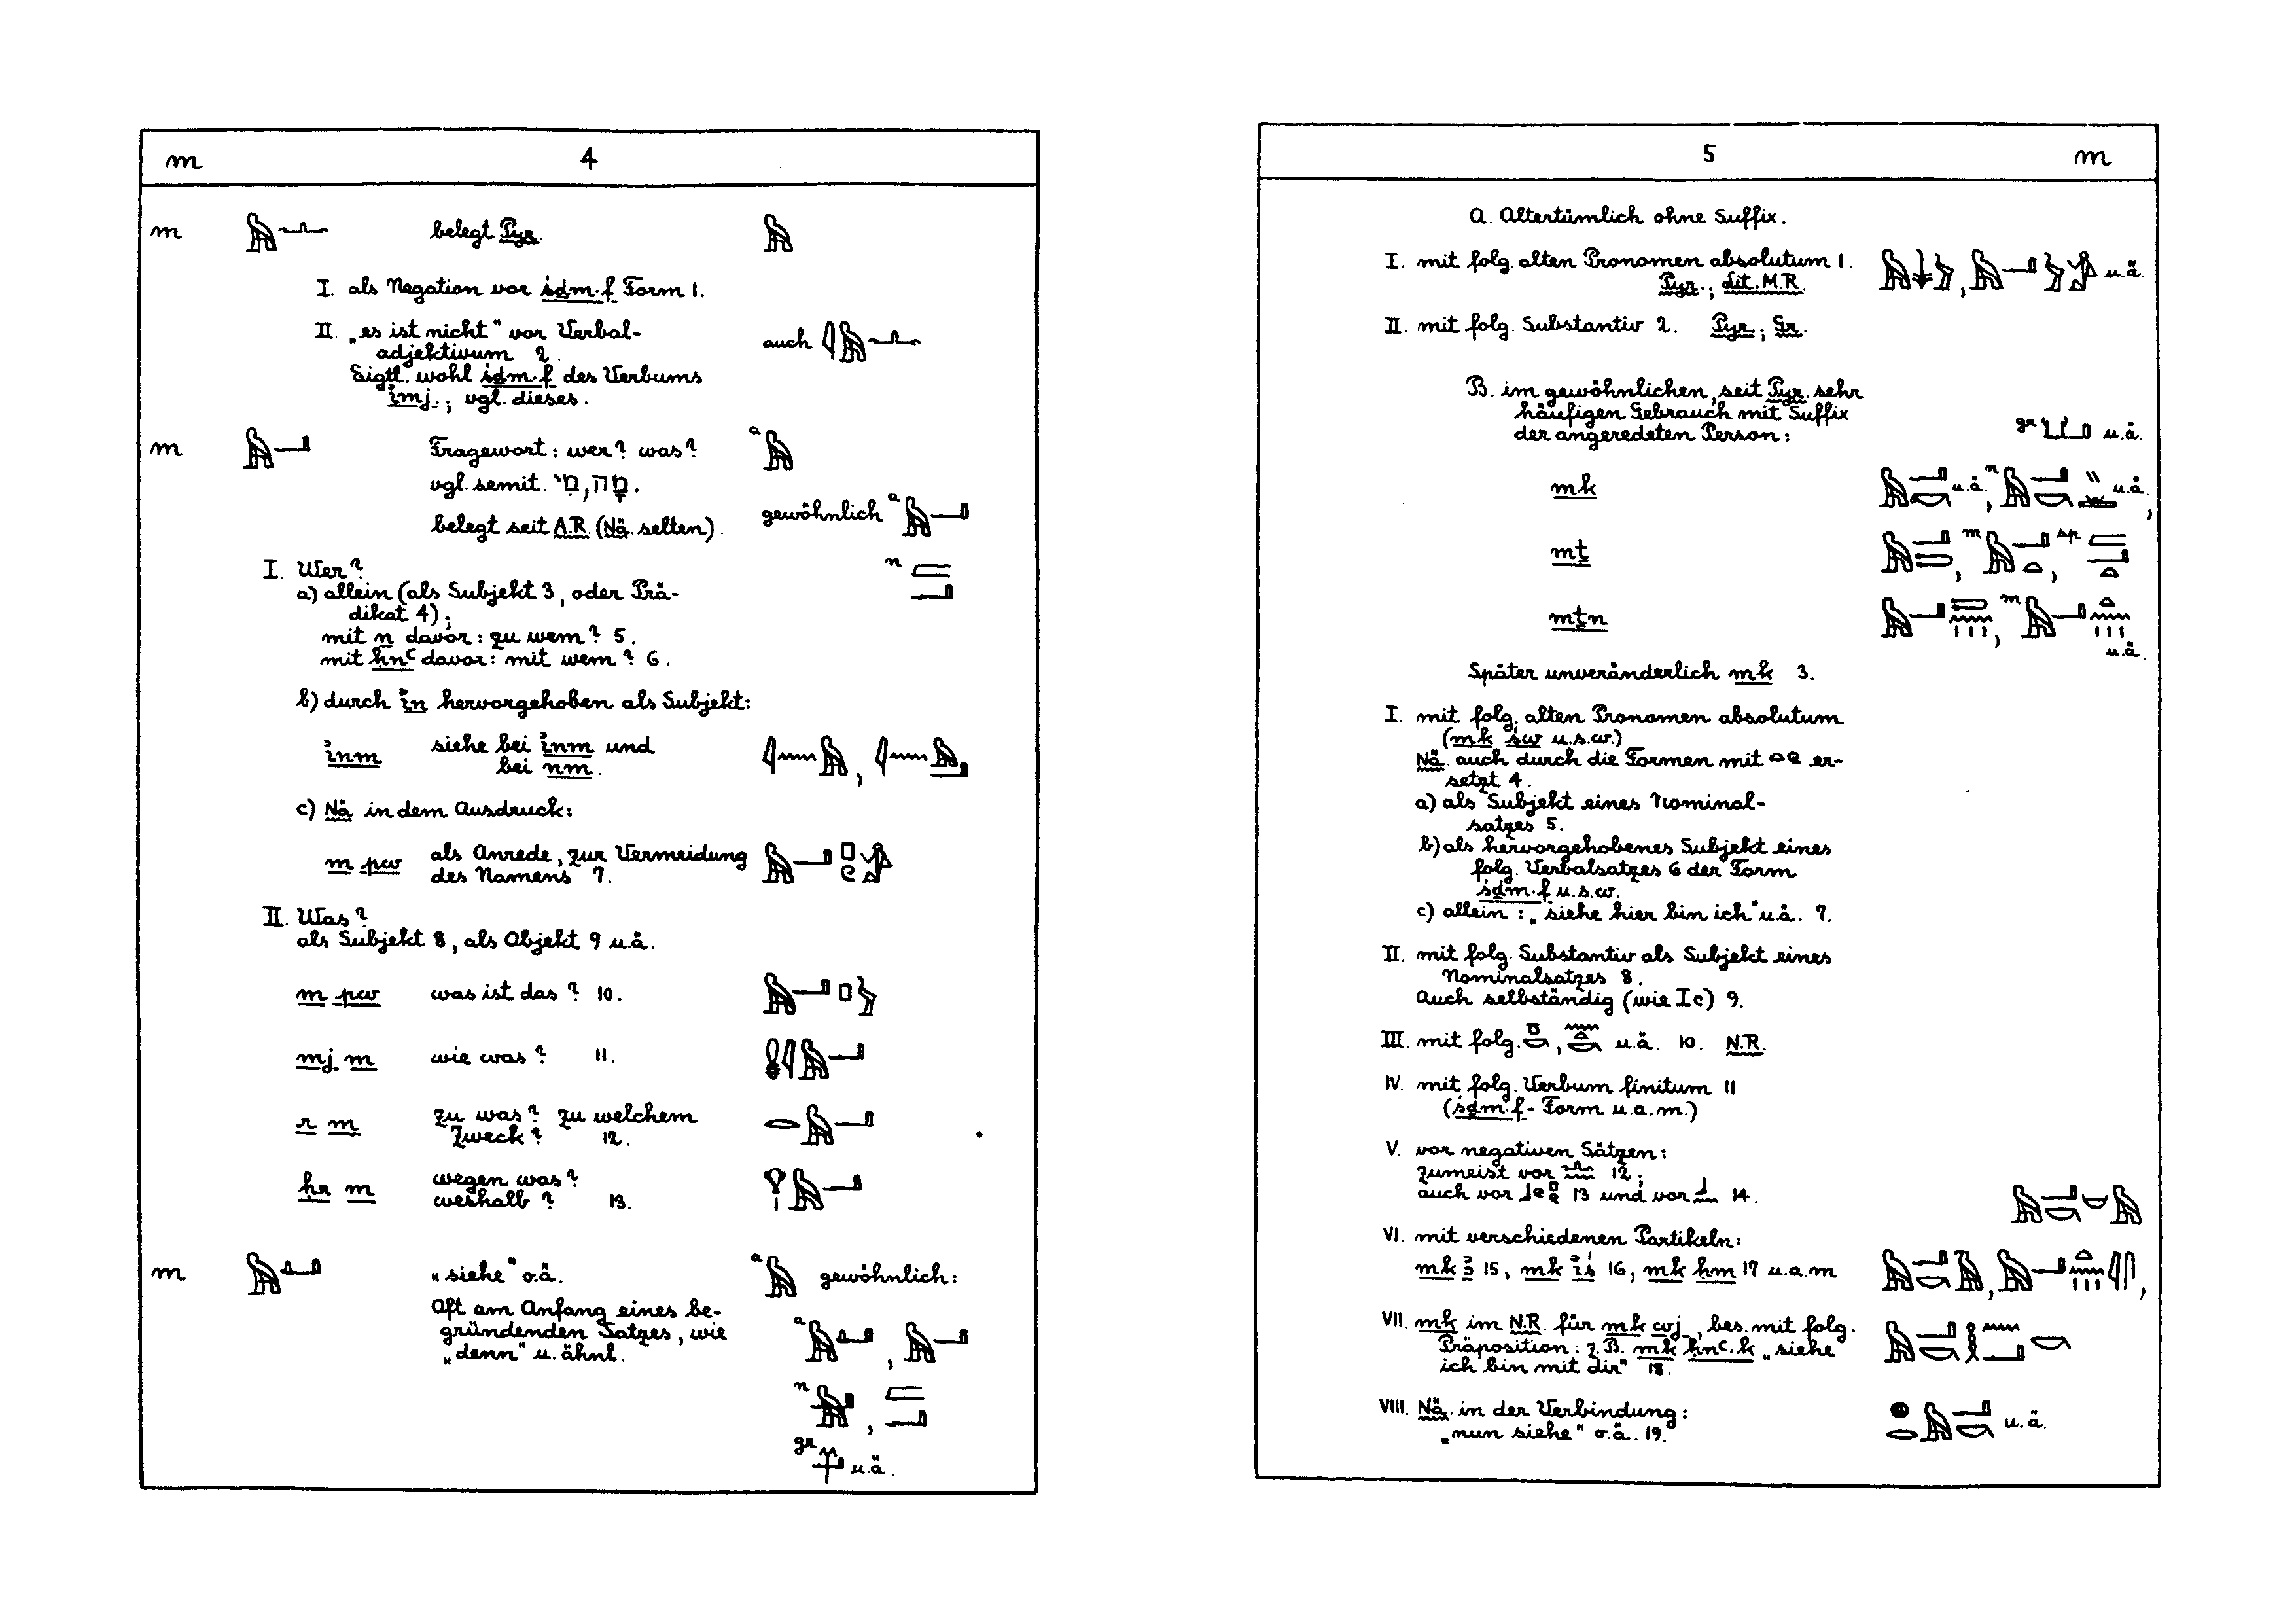 m 4
m belegt Pyr.
I. als Negation vor śḏm·f Form 1.
II. „es ist nicht" vor Verbal-
adjektivum 2. auch
Eigtl. wohl śḏm·f des Verbums
ἰmj.; vgl. dieses.
m Fragewort: wer? was? a
vgl. semit. מִי, מָה.
gewöhnlich a
belegt seit A.R. (Nä. selten).
I. Wer? n
a) allein (als Subjekt 3, oder Prä-
dikat 4);
mit n davor: zu wem? 5.
mit ḥnꜥ davor: mit wem? 6.
b) durch ἰn hervorgehoben als Subjekt:
ἰnm siehe bei ἰnm und
bei nm.
c) Nä. in dem Ausdruck:
m pw als Anrede, zur Vermeidung
des Namens 7.
II. Was?
als Subjekt 8, als Objekt 9 u.ä.
m pw was ist das? 10.
mj m wie was? 11.
r m zu was? zu welchem
Zweck? 12.
ḥr m wegen was?
weshalb? 13.
m „siehe" o.ä. a gewöhnlich:
Oft am Anfang eines be-
gründenden Satzes, wie a ,
„denn" u. ähnl.
n ,
gr u.ä.
5 m
A. Altertümlich ohne Suffix.
I. mit folg. alten Pronomen absolutum 1. , u.ä.
Pyr.; Lit. M.R.
II. mit folg. Substantiv 2. Pyr.; Gr.
B. im gewöhnlichen, seit Pyr. sehr
häufigen Gebrauch mit Suffix
der angeredeten Person: gr u.ä.
mk u.ä., n u.ä.,
mṯ , m , sp
mṯn , m
u.ä.
Später unveränderlich mk 3.
I. mit folg. alten Pronomen absolutum
(mk św u.s.w.)
Nä. auch durch die Formen mit er-
setzt 4.
a) als Subjekt eines Nominal-
satzes 5.
b) als hervorgehobenes Subjekt eines
folg. Verbalsatzes 6 der Form
śḏm·f u.s.w.
c) allein: „siehe hier bin ich" u.ä. 7.
II. mit folg. Substantiv als Subjekt eines
Nominalsatzes 8.
Auch selbständig (wie Ic) 9.
III. mit folg. , u.ä. 10. N.R.
IV. mit folg. Verbum finitum 11
(śḏm·f-Form u.a.m.)
V. vor negativen Sätzen:
zumeist vor 12;
auch vor 13 und vor 14.
VI. mit verschiedenen Partikeln:
mk ꜣ 15, mk ἰś 16, mk ḥm 17 u.a.m
VII. mk im N.R. für mk wj, bes. mit folg.
Präposition: z.B. mk ḥnꜥ·k „siehe
ich bin mit dir" 18.
VIII. Nä. in der Verbindung: u.ä.
„nun siehe" o.ä. 19.